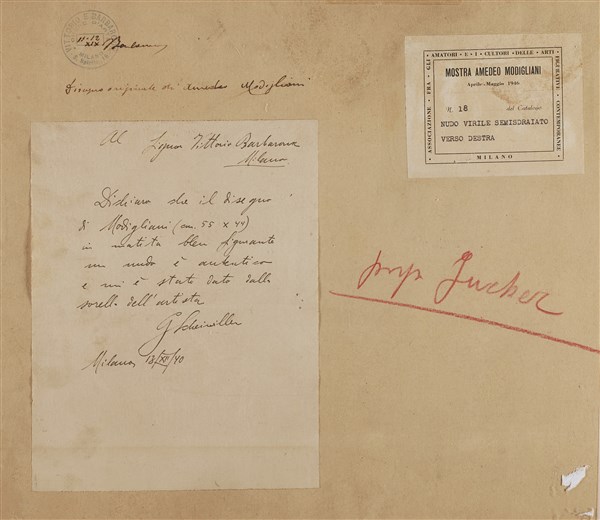 VITTORIO E. BARBAROUX
MILANO
11-12
XIX
Disegno originale di Amedeo Modigliani
Al Signor Vittorio Barbaroux
Milano
Dichiaro che il disegno
di Modigliani (cm. 55 x 44)
in matita bleu figurante
un nudo è autentico
e mi è stato dato dalla
sorella dell'artista
G. Scheiwiller
Milano, 13/XII/40
ASSOCIAZIONE FRA GLI AMATORI E I CULTORI DELLE ARTI FIGURATIVE CONTEMPORANEE
MILANO
MOSTRA AMEDEO MODIGLIANI
Aprile-Maggio 1946
N. 18 del Catalogo
NUDO VIRILE SEMISDRAIATO
VERSO DESTRA
Jucker